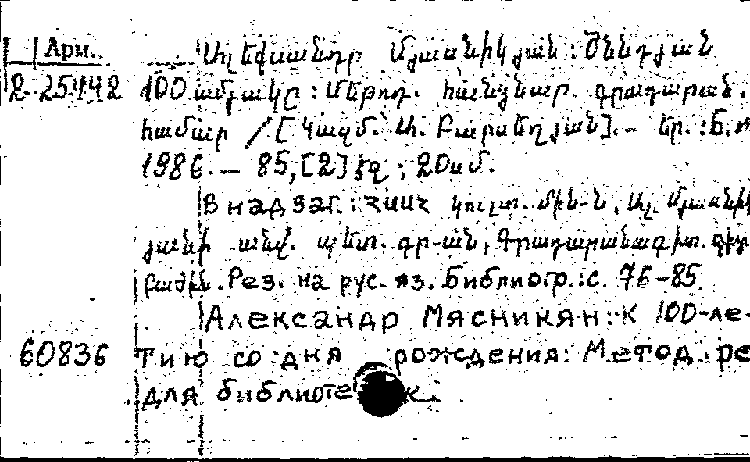 Арм. Ալեքսանդր Մյասնիկյան: Ծննդյան
2-25442 100 ամյակը: Մեթոդ. հանձնար. գրադարան.
համար / [Կազմ. Ա. Բարսեղյան]. - Եր.: Б.и
1986. - 85, [2] էջ; 20 սմ.
В надзаг.: ՀՍՍՀ կուլտ. մին-ն, Ալ. Մյասնի
յանի անվ. պետ. գր-ան, Գրադարանագիտ. գիտ
բաժին. Рез. на рус. яз. Библиогр.: с. 76-85.
Александр Мясникян: К 100-ле-
60836 тию со дня рождения: Метод. ре
для библиотек.